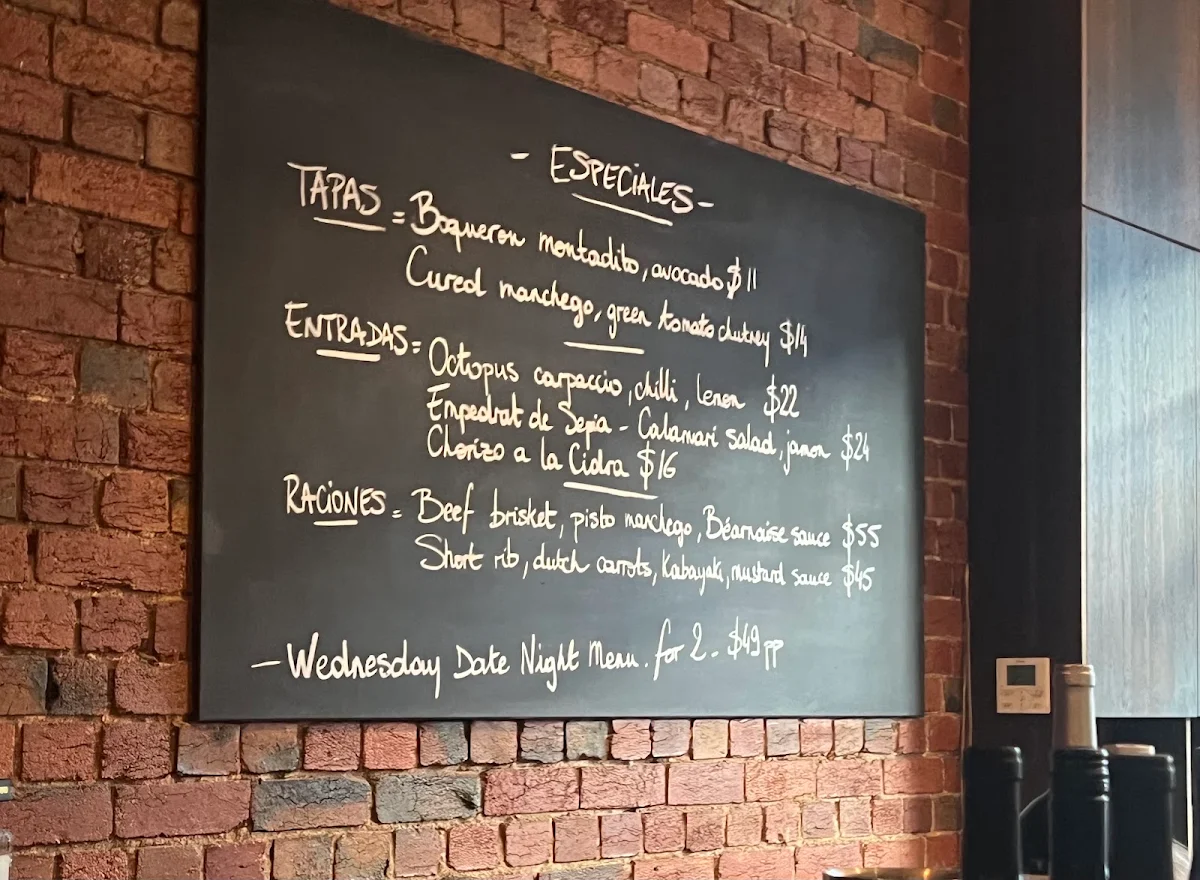 - ESPECIALES -
TAPAS = Boqueron montadito, avocado $11
Cured manchego, green tomato chutney $14
ENTRADAS = Octopus carpaccio, chilli, lemon $22
Empedrat de Sepia - Calamari salad, jamon $24
Chorizo a la Cidra $16
RACIONES = Beef brisket, pisto manchego, Béarnaise sauce $55
Short rib, dutch carrots, Kabayaki, mustard sauce $45
- Wednesday Date Night Menu. for 2 - $49 pp